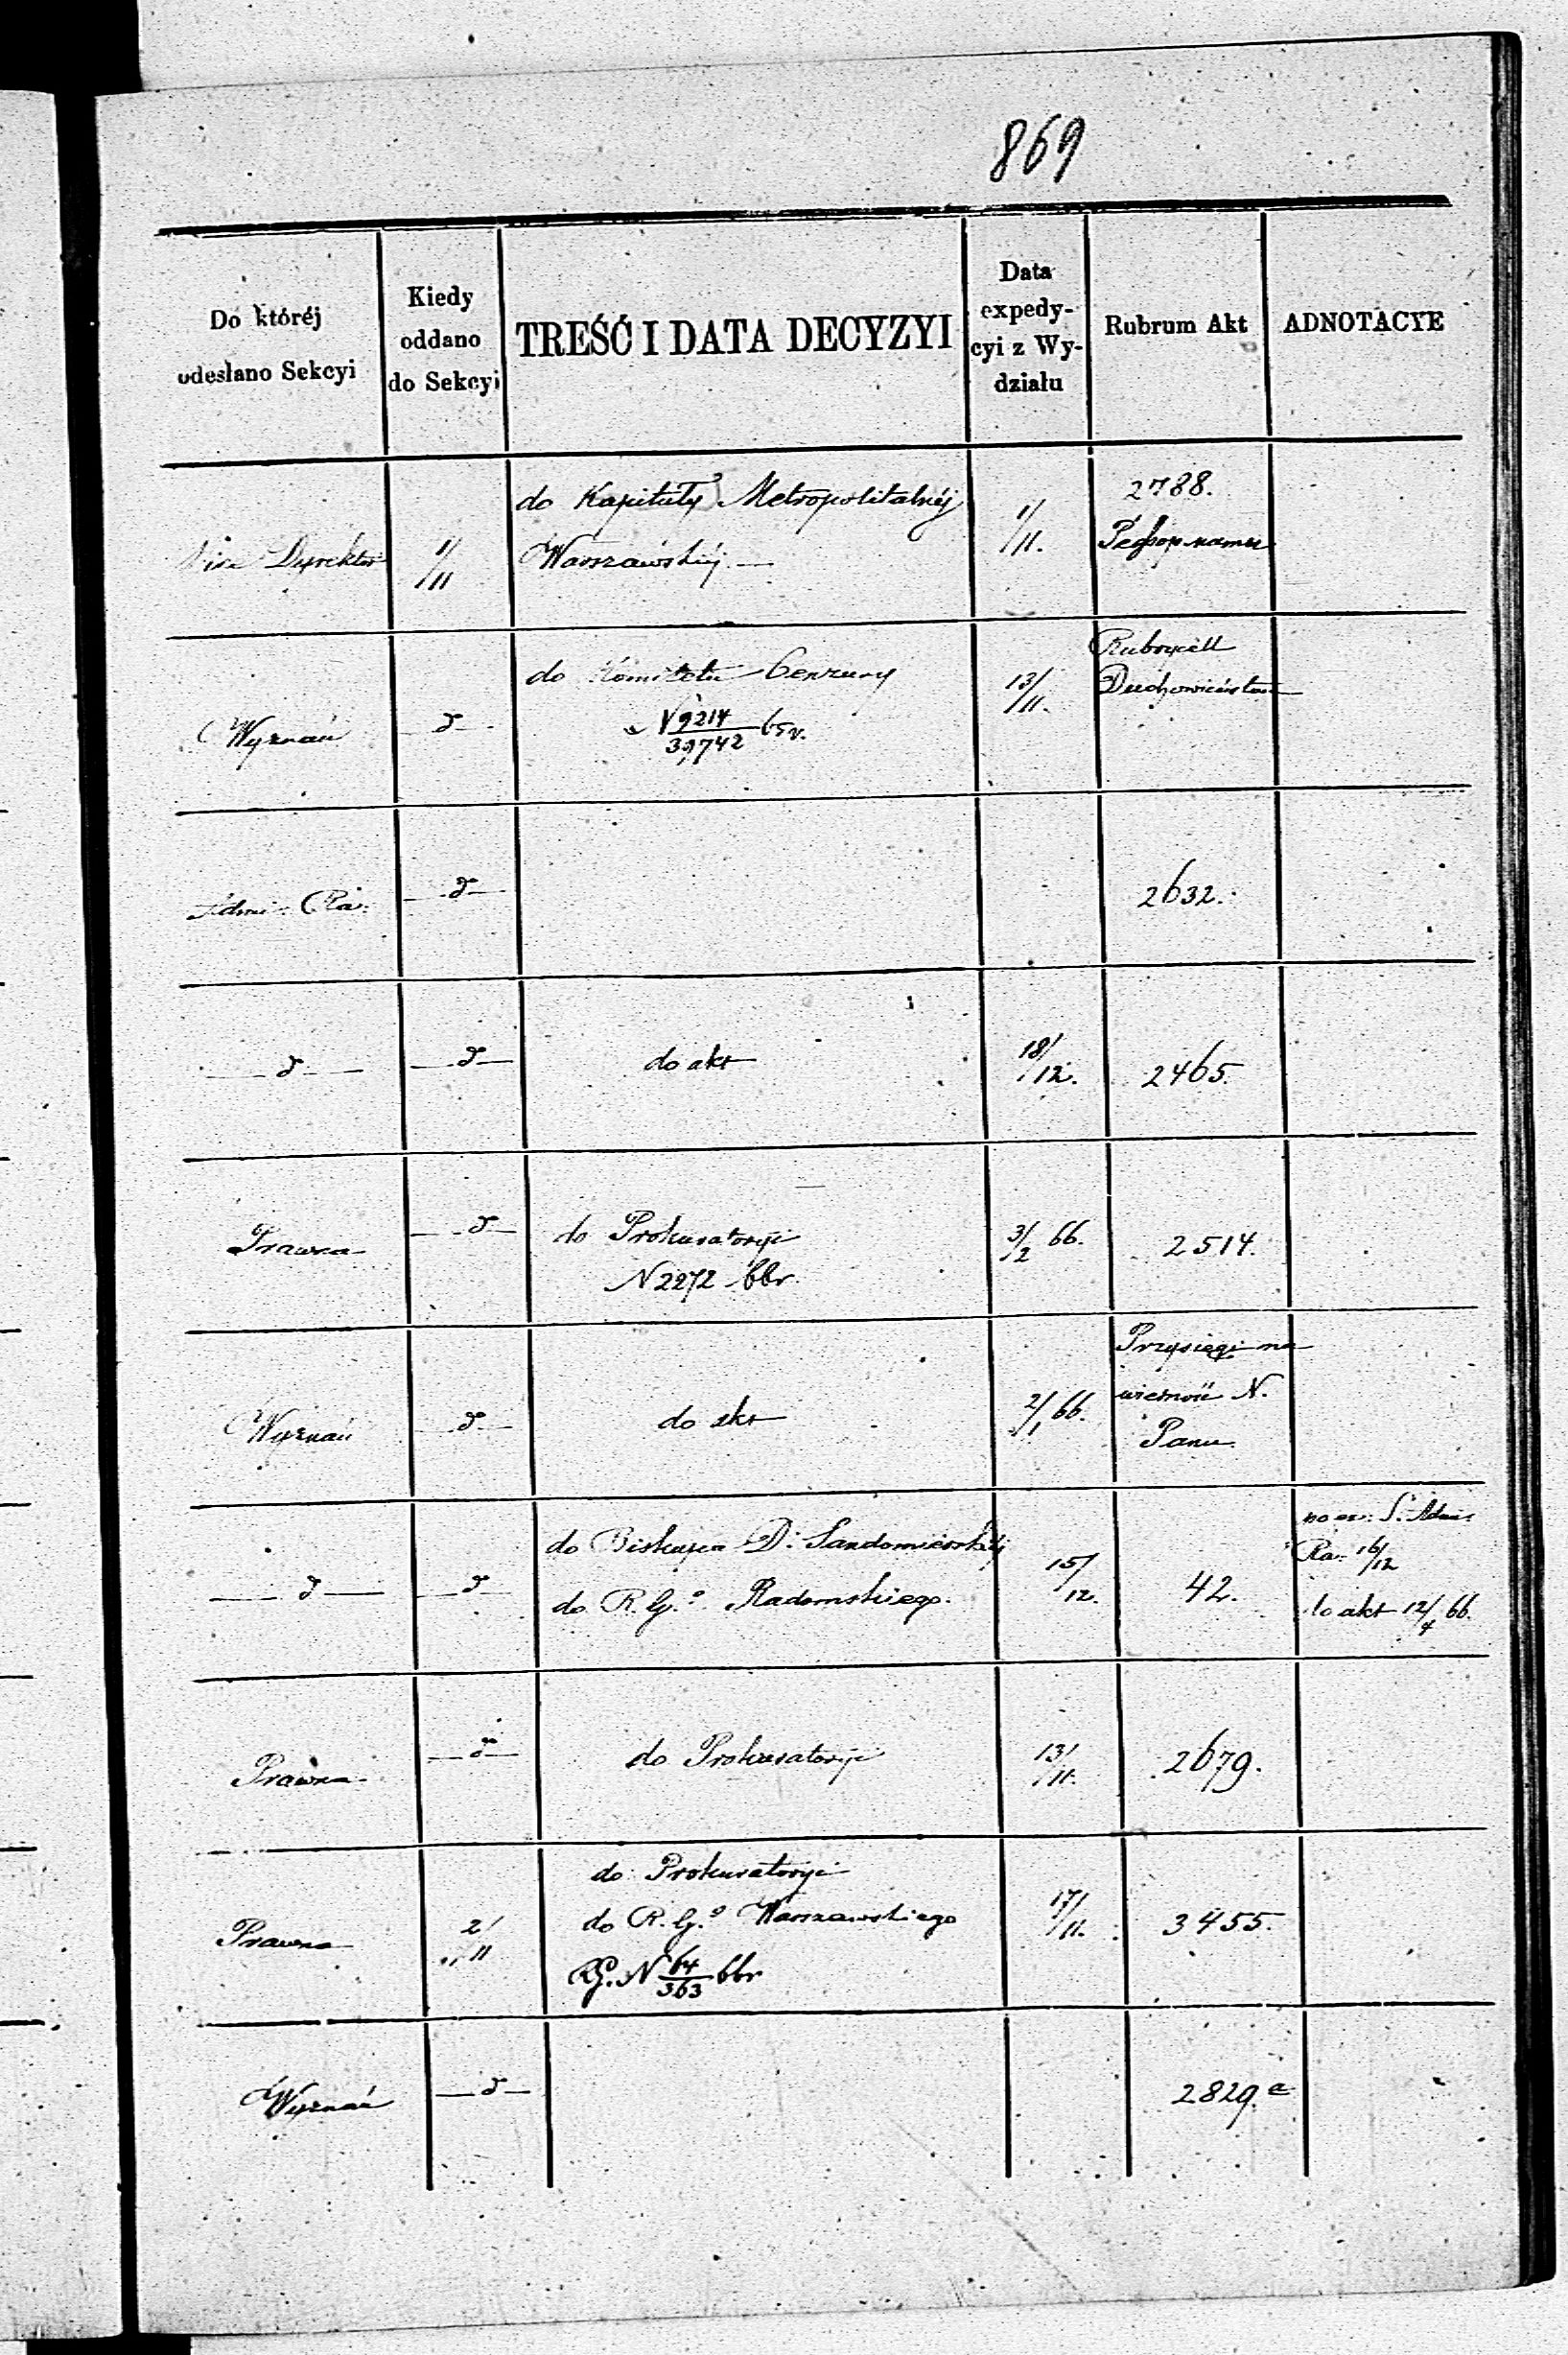 869
Do któréj
odesłano Sekcyi
Kiedy
oddano
do Sekcyi
TREŚĆ I DATA DECYZYI
Data
expedy-
cyi z Wy-
działu
Rubrum Akt
ADNOTACYE
Vice Dyrektor
1/11
do Kapituły Metropolitalnéj
Warszawskiéj —
1/11.
2788.
Реформаты
Wyznań
— d —
do Komitetu Cenzury
N 9214/39742 65 r.
13/11.
Rubrycell
Duchowieństwa
Adm: Ra:
— d —
2632.
— d —
— d —
do akt
18/12.
2465.
Prawna
— d —
do Prokuratoryi
N 2272 66r.
3/2 66.
2514.
Wyznań
— d —
do akt
2/1 66.
Przysięgi na
wierność N.
Panu.
— d —
— d —
do Biskupa D: Sandomierskiéj
do R. G.º Radomskiego.
15/12.
42.
S. Adm:
Ra: 16/12
do akt 12/4 66.
Prawna
— d —
do Prokuratoryi
13/11.
2679.
Prawna
2/11
do Prokuratoryi
do R. G.º Warszawskiego
RG. N 64/363 66r
17/11.
3455.
Wyznań
— d —
2829.a